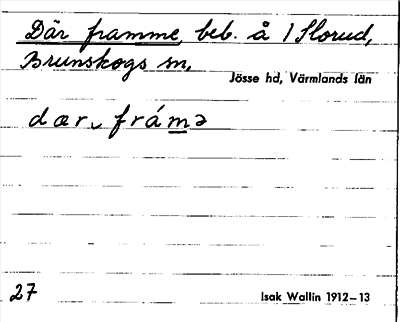 Där framme, beb. å 1 Slorud,
Brunskogs sn,
Jösse hd, Värmlands län
dær‿ frámə
27
Isak Wallin 1912–13